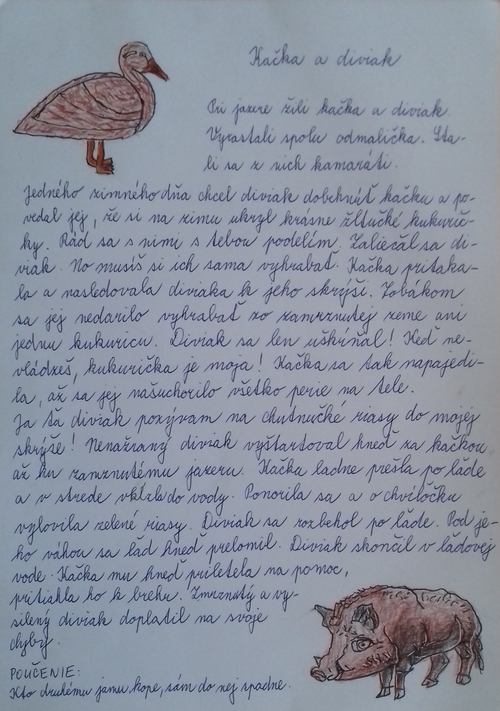 Kačka a diviak
Pri jazere žili kačka a diviak.
Vyrastali spolu odmalička. Sta-
li sa z nich kamaráti.
Jedného zimného dňa chcel diviak dobehnúť kačku a po-
vedal jej, že si na zimu ukryl krásne žltučké kukurič-
ky. Rád sa s nimi s tebou podelím. Zaliečal sa di-
viak. No musíš si ich sama vyhrabať. Kačka pritaka-
la a nasledovala diviaka k jeho skrýši. Zobákom
sa jej nedarilo vyhrabať zo zamrznutej zeme ani
jednu kukuricu. Diviak sa len uškŕňal! Keď ne-
vládzeš, kukurička je moja! Kačka sa tak napajedi-
la, až sa jej našuchorilo všetko perie na tele.
Ja ťa diviak pozývam na chutnučké riasy do mojej
skrýše! Nenažraný diviak vyštartoval hneď za kačkou
až ku zamrznutému jazeru. Kačka ladne prešla po ľade
a v strede vkĺzla do vody. Ponorila sa a o chvíľočku
vylovila zelené riasy. Diviak sa rozbehol po ľade. Pod je-
ho váhou sa ľad hneď prelomil. Diviak skončil v ľadovej
vode. Kačka mu hneď priletela na pomoc,
pritiahla ho k brehu. Zmrznutý a vy-
silený diviak doplatil na svoje
chyby.
POUČENIE:
Kto druhému jamu kope, sám do nej spadne.